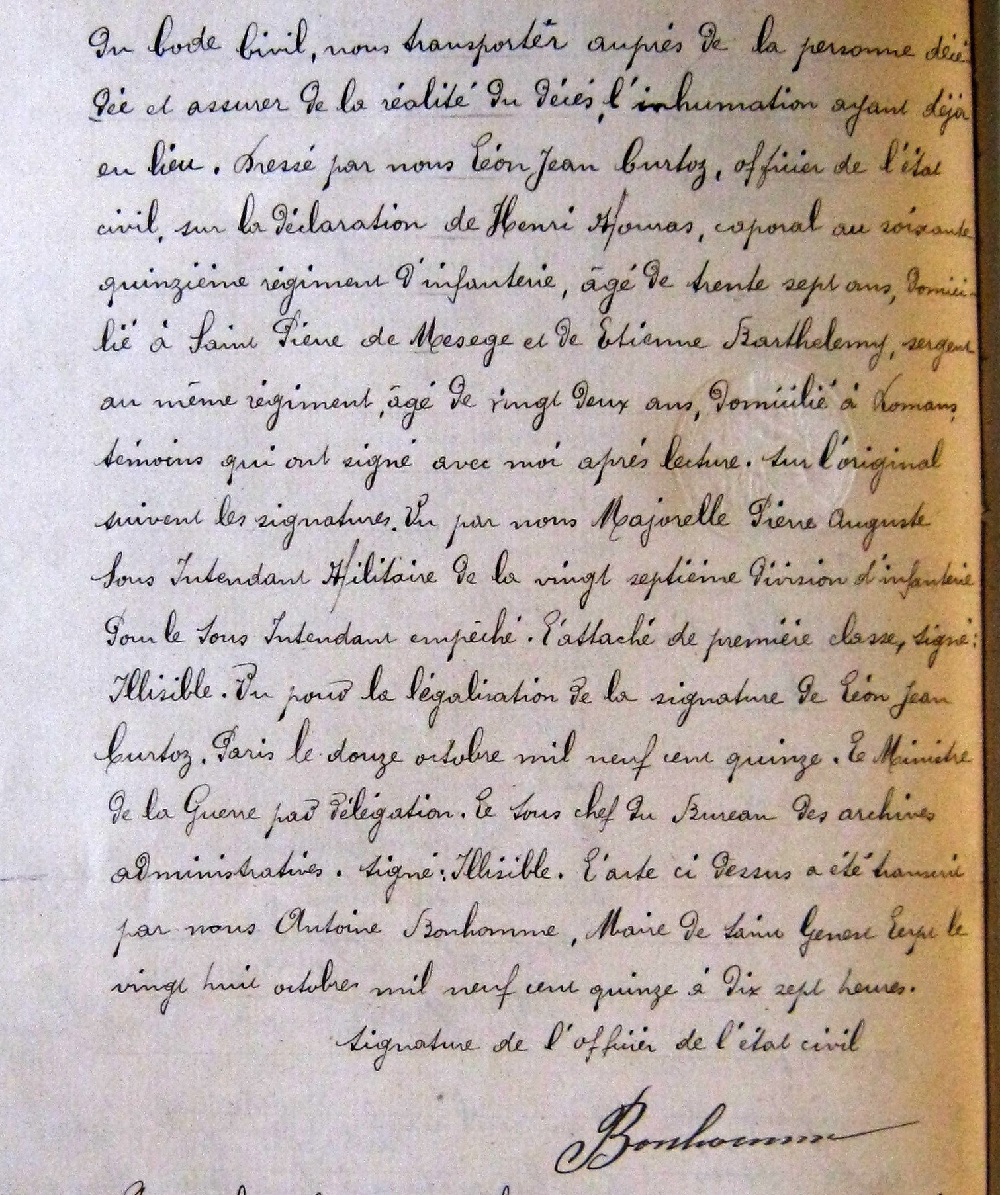 du Code Civil, nous transporter auprès de la personne décé-
dée et assurer de la réalité du décès, l'inhumation ayant déjà
eu lieu. Dressé par nous Léon Jean Curtoz, officier de l'état
civil, sur la déclaration de Henri Mouras, caporal au soixante
quinzième régiment d'infanterie, âgé de trente sept ans, domici-
lié à Saint Pierre de Mesege et de Etienne Barthelemy, sergent
au même régiment, âgé de vingt deux ans, domicilié à Romans,
témoins qui ont signé avec moi après lecture. Sur l'original
suivent les signatures. Vu par nous Majorelle Pierre Auguste
Sous Intendant Militaire de la vingt septième division d'infanterie
Pour le Sous Intendant empêché. L'attaché de première classe, signé:
Illisible. Vu pour la légalisation de la signature de Léon Jean
Curtoz. Paris le douze octobre mil neuf cent quinze. Le Ministre
de la Guerre par délégation. Le Sous chef du Bureau des archives
administratives. Signé: Illisible. L'acte ci dessus a été transcrit
par nous Antoine Bonhomme, Maire de Saint Genest Lerpt le
vingt huit octobre mil neuf cent quinze à dix sept heures.
Signature de l'officier de l'état civil
Bonhomme